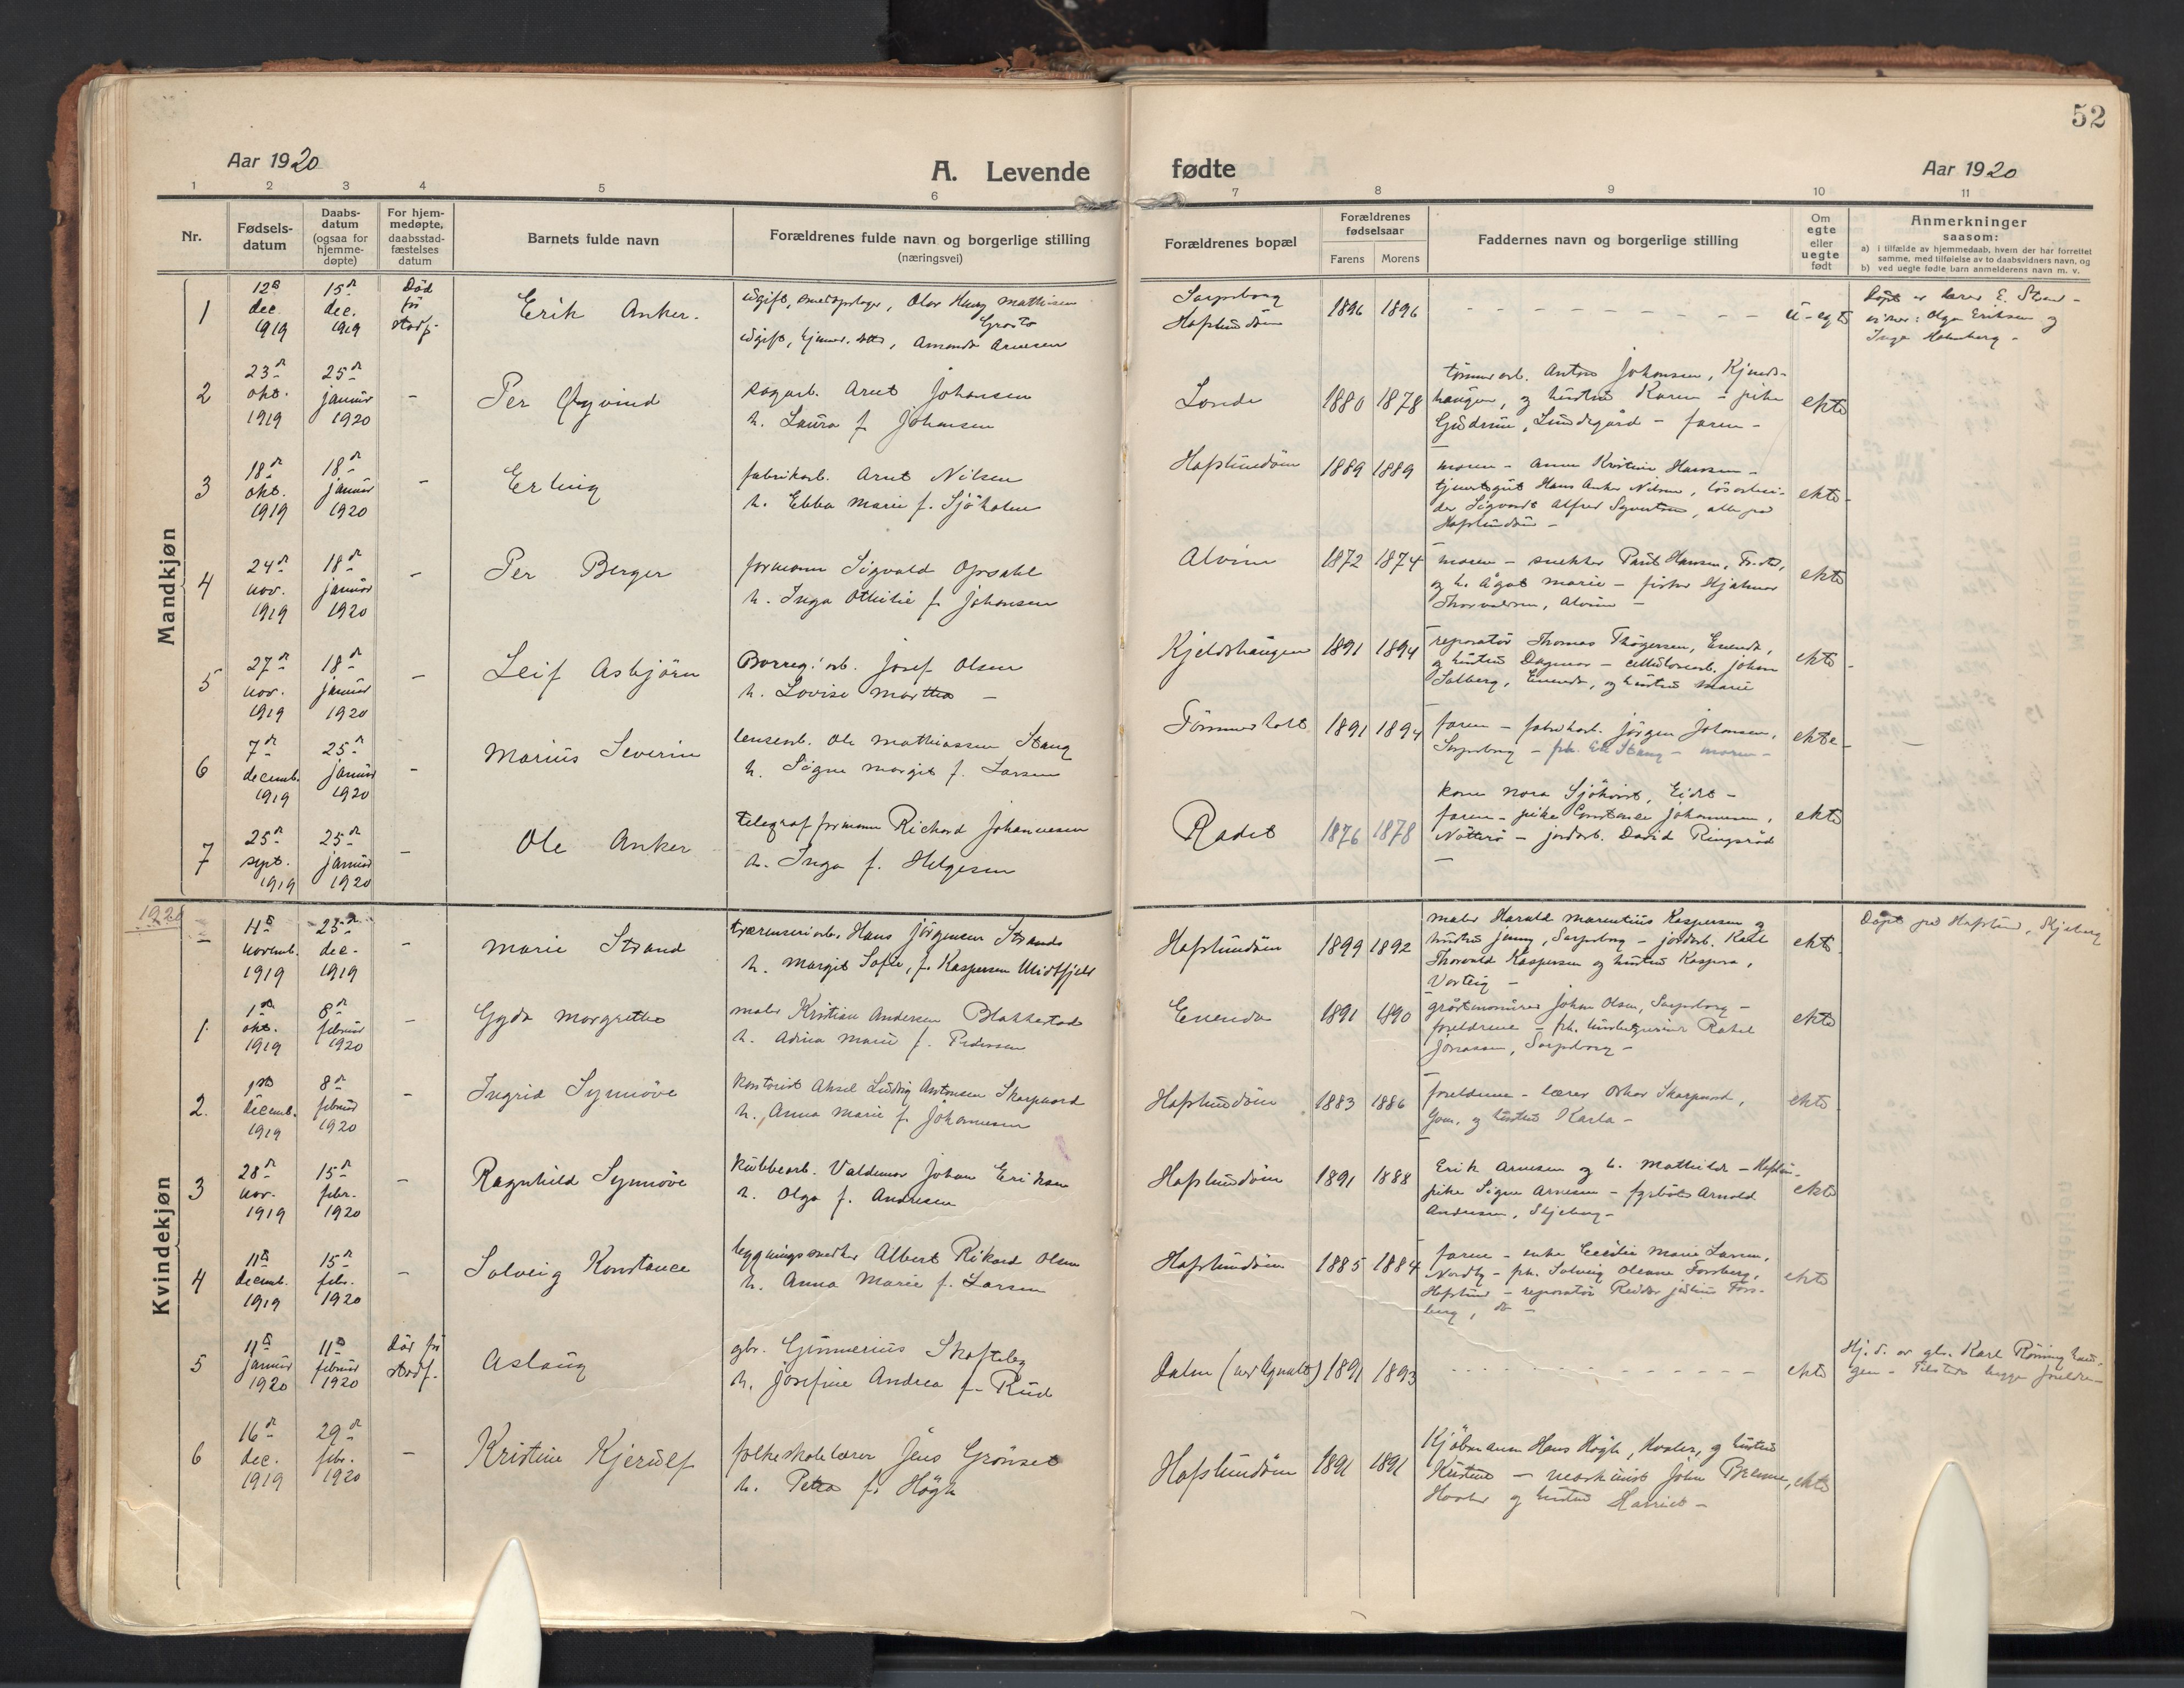 52
Aar 1920
A. Levende
fødte
Aar 1920
1 2 3 4 5 6 7 8 9 10 11
Nr.
Fødsels-
datum
Daabs-
datum
(ogsaa for
hjemme-
døpte)
For hjem-
medøpte,
daabsstad-
fæstelses
datum
Barnets fulde navn
Forældrenes fulde navn og borgerlige stilling
(næringsvei)
Forældrenes bopæl
Forældrenes
fødselsaar
Farens Morens
Faddernes navn og borgerlige stilling
Om
egte
eller
uegte
født
Anmerkninger
saasom:
a) i tilfælde av hjemmedaab, hvem der har forrettet
samme, med tilføielse av to daabsvidners navn, og
b) ved uegte fødte barn anmelderens navn m. v.
Mandkjøn
1
12te
dec.
1919
15de
dec.
1919
Død
før
stadf.
Erik Anker.
ugift, Olav Haug Mathisen
ugift, Amanda Arnesen
Sarpsborg
Hafslundsøen
1896 1896
u-egte
Døpt av lærer E. Strand -
vidner: Olga Eriksen og
Inga Holmberg -
2
23de
okt.
1919
25de
januar
1920
-
Per Øyvind
sagarb. Arnt Johansen
h. Laura f. Johansen
Londe
1880 1878
tømmerarb. Anton Johansen, Kjelds-
haugen, og hustru Karen - pike
Gudrun, Lundegård - faren -
ekte
3
18de
okt.
1919
18de
januar
1920
-
Erling
fabrikarb. Arnt Nilsen
h. Ebba Marie f. Sjöholm
Hafslundsøen
1889 1889
moren - Anna Kristine Hansen -
tjenestegut Hans Anker Nilsen, løsarbei-
der Sigvardt Alfred Syvertsen, alle paa
Hafslundsøen -
ekte
4
24de
nov.
1919
18de
januar
1920
-
Per Berger
formann Sigvald Opsahl
h. Inga Othilie f. Johansen
Alvim
1872 1874
moren - snekker Paul Hansen,
og h. Ågot Marie - fisker Hjalmar
Thorvaldsen, Alvim -
ekte
5
27de
nov.
1919
18de
januar
1920
-
Leif Asbjørn
Borreg. arb. Josef Olsen
h. Lovise Marthea -
Kjeldshaugen
1891 1894
reparatør Thomas Thøgersen, Enenda,
og hustru Dagmar - cellulosearb. Johan
Solberg, Enenda, og hustru Marie
ekte
6
7de
decemb.
1919
25de
januar
1920
-
Marius Severin
lensearb. Ole Mathiassen Stang
h. Signe Margit f. Larsen
Tømmerholt
1891 1894
faren - fabrikarb. Jørgen Johansen,
Sarpsborg - frk. Stang - moren -
ekte
7
25de
sept.
1919
25de
januar
1920
-
Ole Anker
telegrafformann Richard Johannesen
h. Inga f. Helgesen
Radet
1876 1878
kone Nora Sjöhvist, Eidet -
faren - pike Constance Johannesen,
Nøtterø - jordarb. David Ringsrød
-
ekte
Kvindekjøn
1920
-
11te
novemb.
1919
25de
dec.
1919
-
Marie Strand
Hans Jørgensen Strand
h. Margit Sofie, f. Kaspersen Midtfjeld
Hafslundsøen
1899 1892
maler Harald Marentius Kaspersen og
hustru Jenny, Sarpsborg - jordarb. Karl
Thorvald Kaspersen og hustru Kaspara,
Varteig -
ekte
Døpt paa Hafslund, Skjeberg
1.
1ste
okt.
1919
8de
februar
1920
-
Gyda Margrethe
maler Kristian Andersen Blakkestad
h. Adina Marie f. Pedersen
Enenda
1891 1890
gråstensmurer Johan Olsen, Sarpsborg -
foreldrene - frk. Rakel
Jonassen, Sarpsborg -
ekte
2.
1ste
decemb.
1919
8de
februar
1920
-
Ingrid Synnøve
kontorist Aksel Ludvig Antonsen Skarpnord
h. Anna Marie f. Johannesen
Hafslundsøen
1883 1886
foreldrene - lærer Oskar Skarpnord,
og hustru Karla -
ekte
3
28de
nov.
1919
15de
febr.
1920
-
Ragnhild Synnøve
kubbearb. Valdemar Johan Eriksen
h. Olga f. Andresen
Hafslundsøen
1891 1888
Erik Arnesen og h. Mathilde - Hafslun-
pike Signe Arnesen - fyrbøter Arnold
Andresen, Skjeberg -
ekte
4
11te
decemb.
1919
15de
febr.
1920
-
Solveig Konstance
bygningssnekker Albert Rikard Olsen
h. Anna Marie f. Larsen
Hafslundsøen
1885 1884
faren - enke Cecilie Marie Larsen,
Nordby - frk. Solveig Oleane Forsberg,
Hafslund - reparatør Reidar Justin Fors-
berg, do -
ekte
5
11te
januar
1920
11te
februar
1920
Død før
stadf.
Aslaug
gbr. Gunnerius Skofteby
h. Josefine Andrea f. Rud
1891 1893
ekte
Hj. d. av gbr. Karl Rønning
gen - Tilstede begge foreldre -
6
16de
dec.
1919
29de
febr.
1920
-
Kristine Kjerulf
folkeskolelærer Jens Grønset
h. Petra f. Høgh
Hafslundsøen
1891 1891
Kjøbmann Hans Høgh, Hvaler, og hustru
Kristine - maskinist John Bremne,
Hvaler og hustru Harriet -
ekte